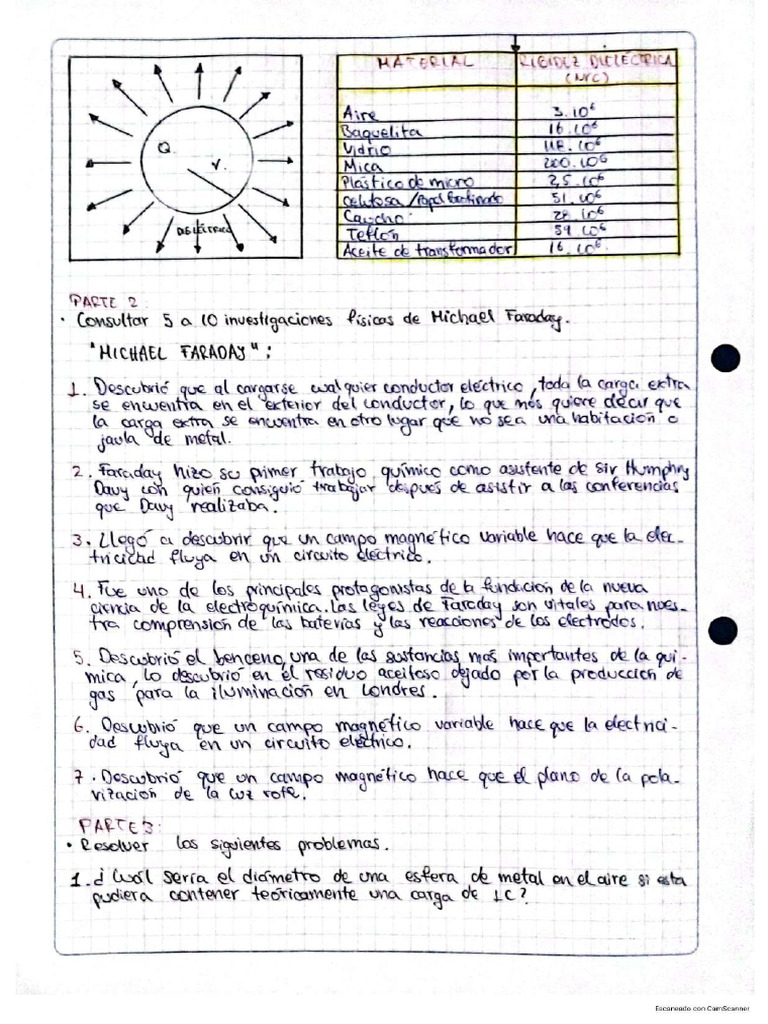 Q
V.
DIELÉCTRICO
MATERIAL RIGIDEZ DIELÉCTRICA
(N/C)
Aire 3.10⁶
Baquelita 16.10⁶
Vidrio 118.10⁶
Mica 200.10⁶
Plástico de micro 25.10⁶
Celulosa /Papel 51.10⁶
Caucho 28.10⁶
Teflón 59.10⁶
Aceite de transformador 16.10⁶
PARTE 2:
• Consultar 5 a 10 investigaciones físicas de Michael Faraday.
"MICHAEL FARADAY":
1. Descubrió que al cargarse cualquier conductor eléctrico, toda la carga extra
se encuentra en el exterior del conductor, lo que mos quiere decir que
la carga extra se encuentra en otro lugar que no sea una habitación o
jaula de metal.
2. Faraday hizo su primer trabajo químico como asistente de Sir Humphry
Davy con quien consiguió trabajar después de asistir a las conferencias
que Davy realizaba.
3. Llegó a descubrir que un campo magnético variable hace que la elec-
tricidad fluya en un circuito eléctrico.
4. Fue uno de los principales protagonistas de la fundación de la nueva
ciencia de la electroquímica. Las leyes de Faraday son vitales para nues-
tra comprensión de las baterías y las reacciones de los electrodos.
5. Descubrió el benceno, una de las sustancias más importantes de la quí-
mica, lo descubrió en el residuo aceitoso dejado por la producción de
gas para la iluminación en Londres.
6. Descubrió que un campo magnético variable hace que la electrici-
dad fluya en un circuito eléctrico.
7. Descubrió que un campo magnético hace que el plano de la pola-
rización de la luz rote.
PARTE 3:
• Resolver los siguientes problemas.
1. ¿Cuál sería el diámetro de una esfera de metal en el aire si esta
pudiera contener teóricamente una carga de 1C?
Escaneado con CamScanner